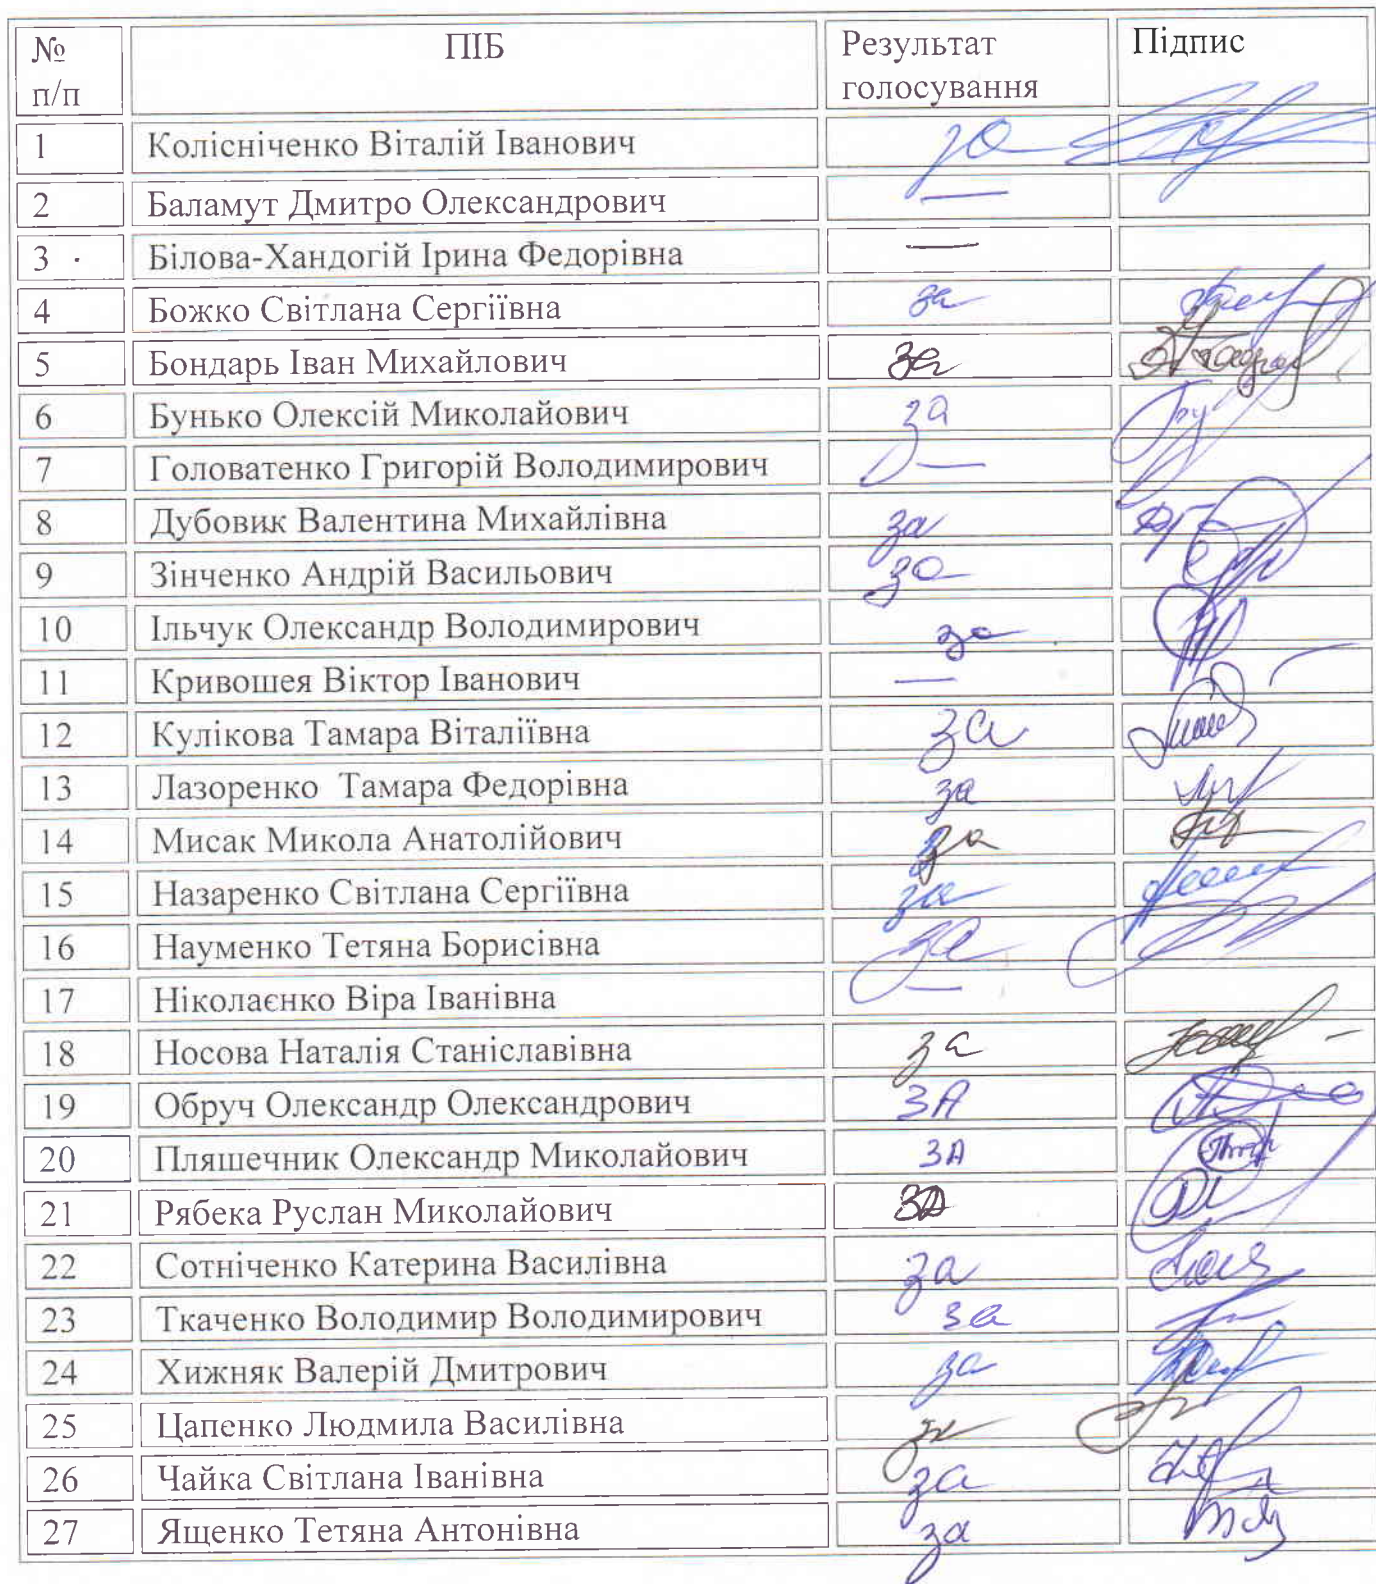 № п/п ПІБ Результат голосування Підпис
1 Колісніченко Віталій Іванович за
2 Баламут Дмитро Олександрович —
3 Білова-Хандогій Ірина Федорівна —
4 Божко Світлана Сергіївна за
5 Бондарь Іван Михайлович за
6 Бунько Олексій Миколайович за
7 Головатенко Григорій Володимирович —
8 Дубовик Валентина Михайлівна за
9 Зінченко Андрій Васильович за
10 Ільчук Олександр Володимирович за
11 Кривошея Віктор Іванович —
12 Кулікова Тамара Віталіївна за
13 Лазоренко Тамара Федорівна за
14 Мисак Микола Анатолійович за
15 Назаренко Світлана Сергіївна за
16 Науменко Тетяна Борисівна за
17 Ніколаєнко Віра Іванівна —
18 Носова Наталія Станіславівна за
19 Обруч Олександр Олександрович ЗА
20 Пляшечник Олександр Миколайович ЗА
21 Рябека Руслан Миколайович ЗА
22 Сотніченко Катерина Василівна за
23 Ткаченко Володимир Володимирович за
24 Хижняк Валерій Дмитрович за
25 Цапенко Людмила Василівна за
26 Чайка Світлана Іванівна за
27 Ященко Тетяна Антонівна за